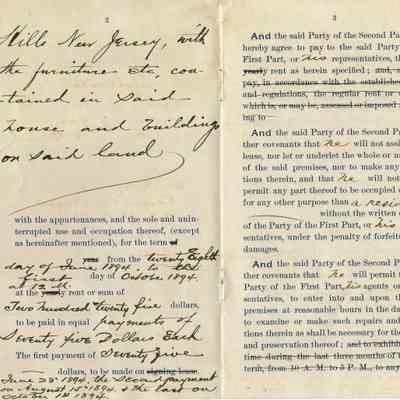 2
Hills New Jersey, with
the furniture etc, con-
tained in said
house and buildings
on said land
with the appurtenances, and the sole and unin-
terrupted use and occupation thereof, (except
as hereinafter mentioned), for the term of
years from the twenty Eighth
day of June 1894, to the
first day of October 1894.
at 12 M.
at the yearly rent or sum of
Two hundred twenty five dollars,
to be paid in equal payments of
Seventy five Dollars Each
The first payment of Seventy five
dollars, to be made on signing lease.
June 28th 1894, the Second payment
on August 15th 1894 & the last on
October 1st 1894.
3
And the said Party of the Second Pa
hereby agree to pay to the said Party
First Part, or his representatives, th
yearly rent as herein specified; and, a
pay, in accordance with the established
and regulations, the regular rent or
which is, or may be, assessed or imposed
ing to—
And the said Party of the Second Pa
ther covenants that he will not assi
lease, nor let or underlet the whole or
of the said premises, nor to make any
tions therein, and that he will not
permit any part thereof to be occupied
for any other purpose than a resid
without the written c
of the Party of the First Part, or his
sentatives, under the penalty of forfeit
damages.
And the said Party of the Second Pa
ther covenants that he will permit
Party of the First Part, his agents or
sentatives, to enter into and upon th
premises at reasonable hours in the da
to examine or make such repairs and
tions therein as shall be necessary for the
and preservation thereof; and to exhibit
time during the last three months of
term, from 10 A. M. to 3 P. M., to any